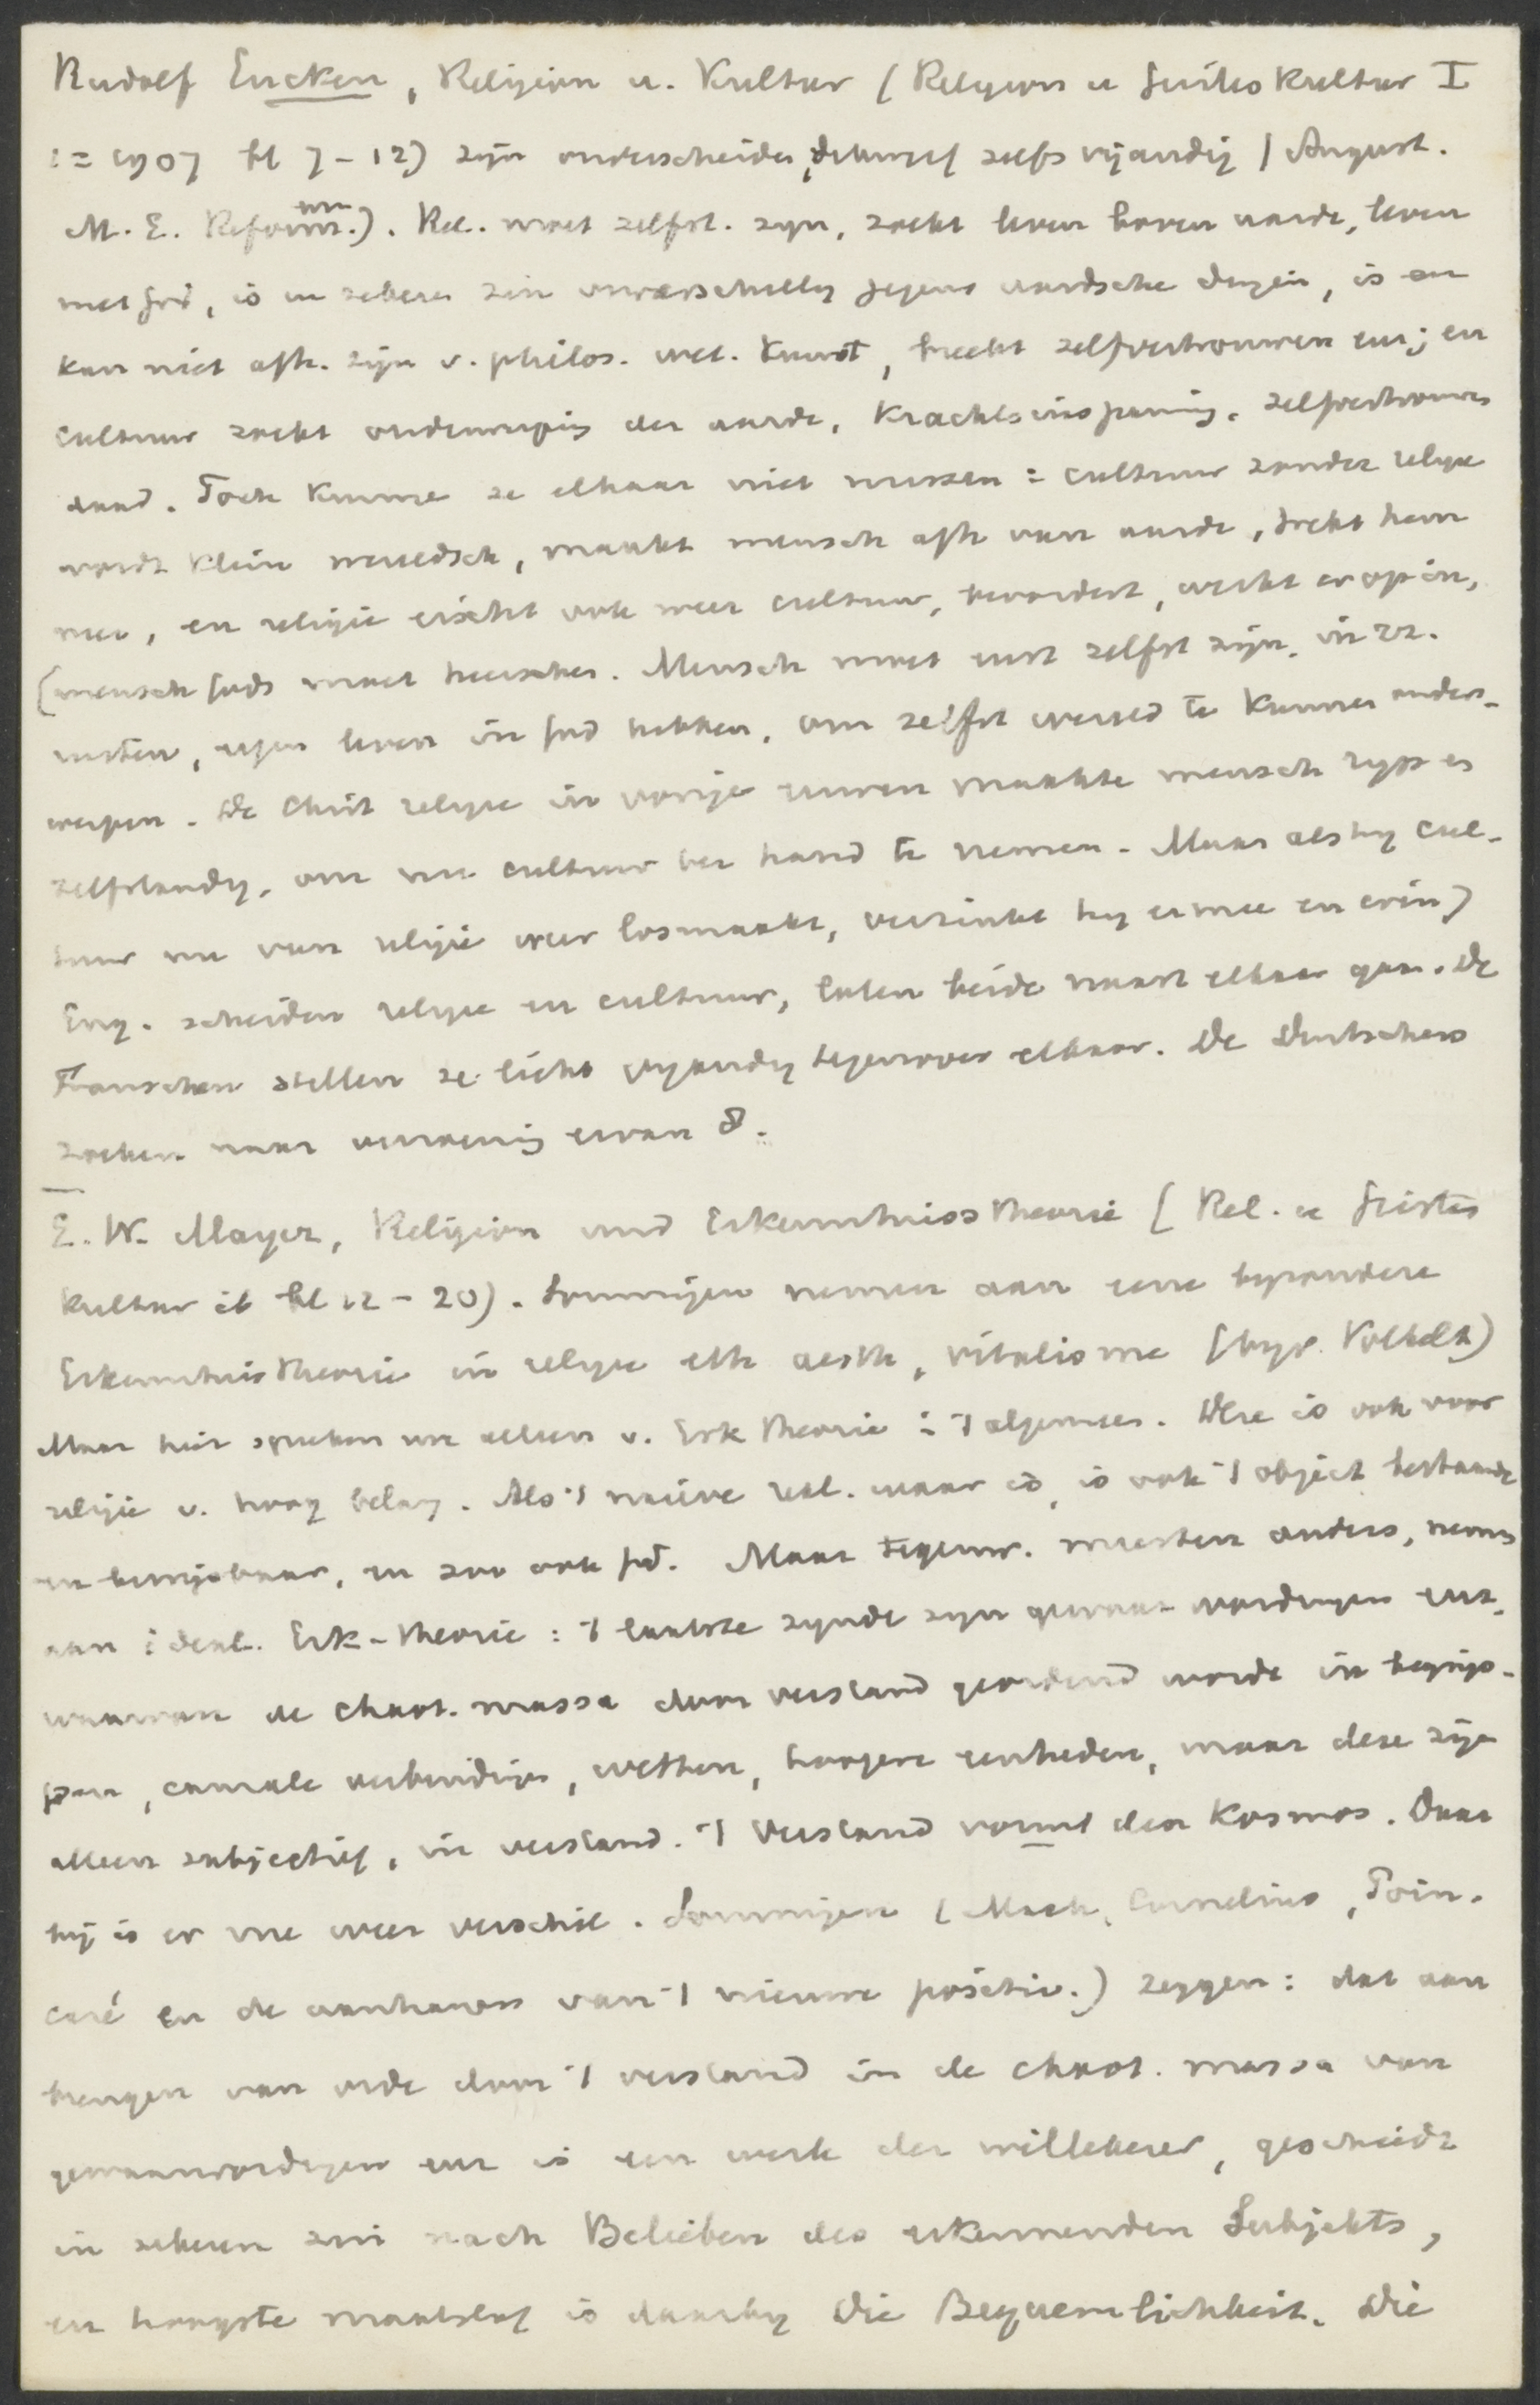 Rudolf Eucken, Religion u. Kultur (Religion u Geisteskultur I
1 = 1907 bl 7-12) zijn onderscheiden, dikwijls zelfs vijandig (August.
M.E. Reform.). Rel. moet zelfst. zijn, zoekt leven boven aarde, leven
met God, is in zekeren zin onverschillig jegens aardsche dingen, is en
kan niet afh. zijn v. philos. wet. kunst, breekt zelfvertrouwen enz; en
cultuur zoekt onderwerping der aarde, krachtsinspanning, zelfvertrouwen
daad. Toch kunnen ze elkaar niet missen: cultuur zonder religie
wordt klein wereldsch, maakt mensch afh van aarde, trekt hem
neer, en religie eischt ook weer cultuur, bevordert, werkt erop in,
(mensch Gods moet heerschen. Mensch moet eerst zelfst zijn, in zz.
rusten, eigen leven in God hebben, om zelfst wereld te kunnen onder-
werpen. De Christ religie in vorige eeuwen maakte mensch rijp en
zelfstandig, om nu cultuur ter hand te nemen. Maar als hij cul-
tuur nu van religie weer losmaakt, verzinkt hij ermee en erin)
Eng. scheiden religie en cultuur, laten beide naast elkaar gaan. De
Franschen stellen ze licht vijandig tegenover elkaar. De Duitschers
zoeken naar verzoening ervan
E. W. Mayer, Religion und Erkenntnisstheorie (Rel. u Geistes
kultur ib bl 12-20). Sommigen nemen aan eene bijzondere
Erkenntnistheorie in religie eth aesth, vitalisme (bijv. Volkelt)
Maar hier spreken we alleen v. Erk theorie in 't algemeen. Deze is ook voor
religie v. hoog belang. Als 't naive real. waar is, is ook 't object bestaande
en kenbaar, en zoo ook God. Maar tegenw. meesten anders, nemen
aan ideal. Erk-theorie: 't laatste zijnde zijn gewaarwordingen enz,
waarvan de chaot. massa door verstand geordend wordt in begrip-
pen, causale verbindingen, wetten, hoogere eenheden, maar deze zijn
alleen subjectief, in verstand. 't Verstand vormt den Kosmos. Daar
bij is er nu weer verschil. Sommigen (Mach, Cornelius, Poin-
caré en de aanhangers van 't nieuwe positiv.) zeggen: dat aan
brengen van orde door 't verstand in de chaot. massa van
gewaarwordingen enz is een werk der willekeur, geschiedt
in zekeren zin nach Belieben des erkennenden Subjekts,
en hoogste maatstaf is daarbij die Bequemlichkeit. Die